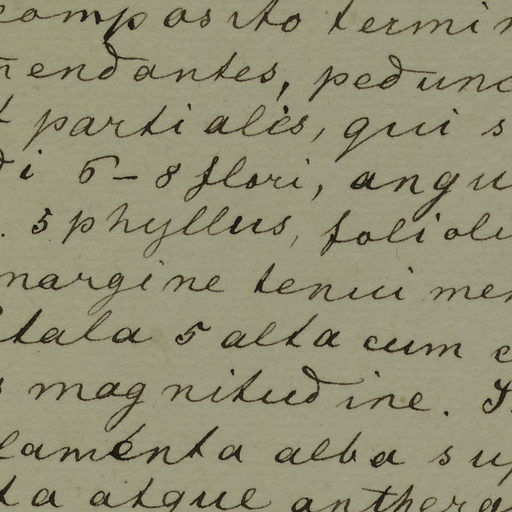 composito termin
endantes, pedunc
t partialis, qui s
di 6-8 flori, angu
. 5 phyllus, foliolu
margine tenui mem
tala 5 alta cum c
s magnitudine. S
lamenta alba sup
ta atque anthera